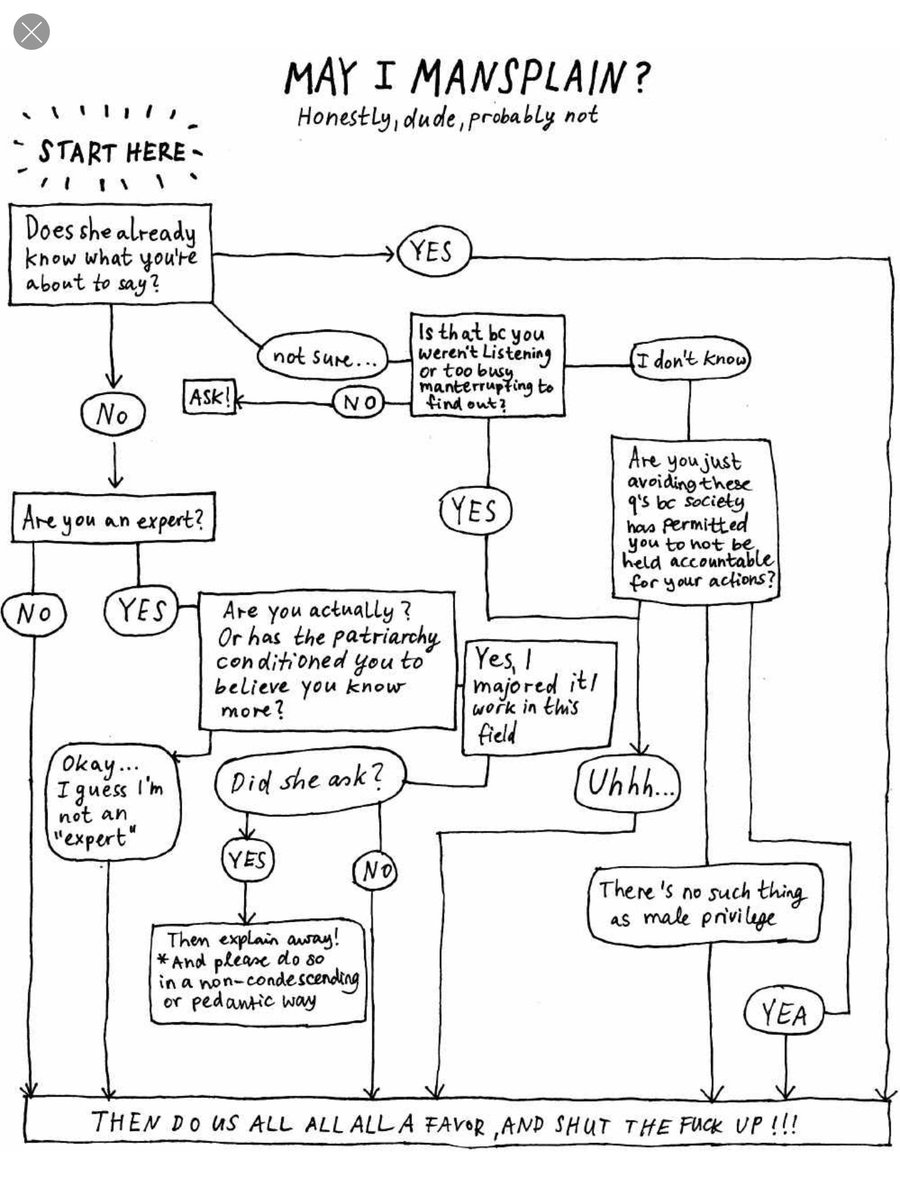 MAY I MANSPLAIN?
Honestly, dude, probably not
START HERE
Does she already
know what you're
about to say?
YES
not sure...
Is that bc you
weren't Listening
or too busy
manterrupting to
find out?
I don't know
ASK!
NO
No
YES
Are you just
avoiding these
q's bc society
has permitted
you to not be
held accountable
for your actions?
Are you an expert?
NO
YES
Are you actually?
Or has the patriarchy
conditioned you to
believe you know
more?
Yes, I
majored it/
work in this
field
Okay...
I guess I'm
not an
"expert"
Did she ask?
Uhhh...
YES
NO
There's no such thing
as male privilege
Then explain away!
*And please do so
in a non-condescending
or pedantic way
YEA
THEN DO US ALL ALL ALL A FAVOR, AND SHUT THE FUCK UP!!!